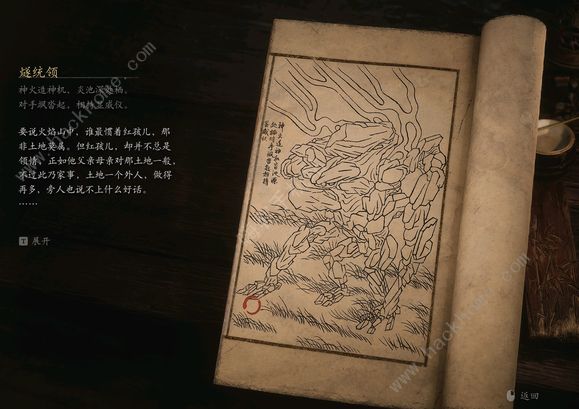 燧统领
神火造神机、炎池深处栖。
对手飒沓起，相持显威仪。
要说火焰山中，谁最惯着红孩儿，那
非土地莫属。但红孩儿，却并不总是
领情，正如他父亲母亲对那土地一般，
不过此乃家事，土地一个外人，做得
再多，旁人也说不上什么好话。
……
T 展开
返回
www.hackhome.com